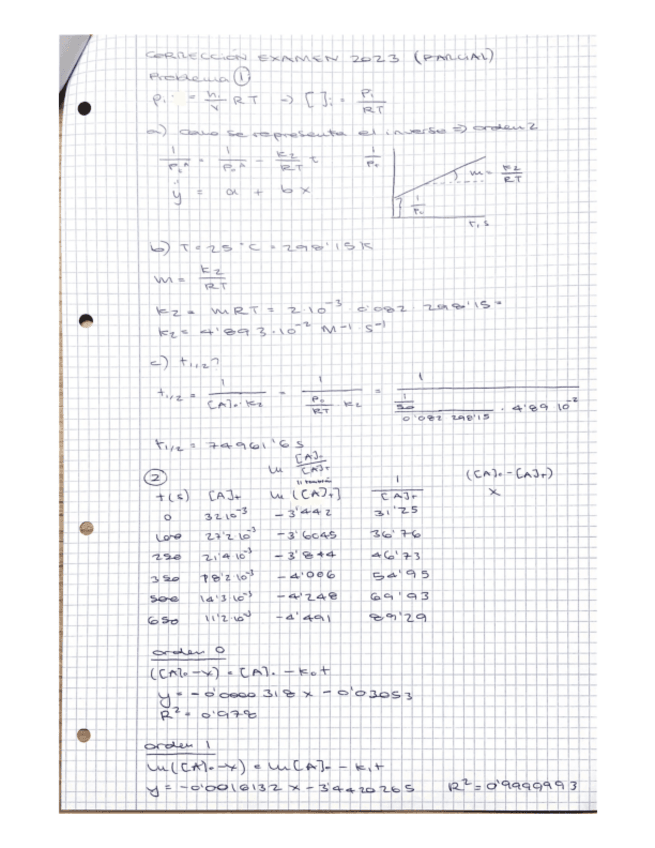 CORRECCIÓN EXAMEN 2023 (PARCIAL)
Problema ①
Pi = ni/V RT -> [ ]i = Pi/RT
a) como se representa el inverso => orden 2
1/P = 1/P - K2/RT t
y = a + b x
1/Pt
m = K2/RT
1/P0
t, s
b) T = 25 °C = 298'15 K
m = K2/RT
K2 = mRT = 2·10^-3 · 0'082 · 298'15 =
K2 = 4'893·10^-2 M^-1 s^-1
c) t1/2?
t1/2 = 1/([A]0·K2) = 1/(P0/RT · K2) = 1/((1/50)/(0'082 298'15) · 4'89 10^-2)
t1/2 = 74961'6 s
②
t(s) [A]t ln([A]t) 1/[A]t ([A]0-[A]t) x
0 32 10^-3 -3'442 31'25
100 27'2 10^-3 -3'6045 36'76
250 21'4 10^-3 -3'844 46'73
350 18'2 10^-3 -4'006 54'95
500 14'3 10^-3 -4'248 69'93
650 11'2 10^-3 -4'491 89'29
orden 0
([A]0-x) = [A]0 - K0t
y = -0'0000318 x - 0'03053
R² = 0'978
orden 1
ln([A]0-x) = ln[A]0 - K1t
y = -0'0016132 x - 3'4420265 R² = 0'9999993